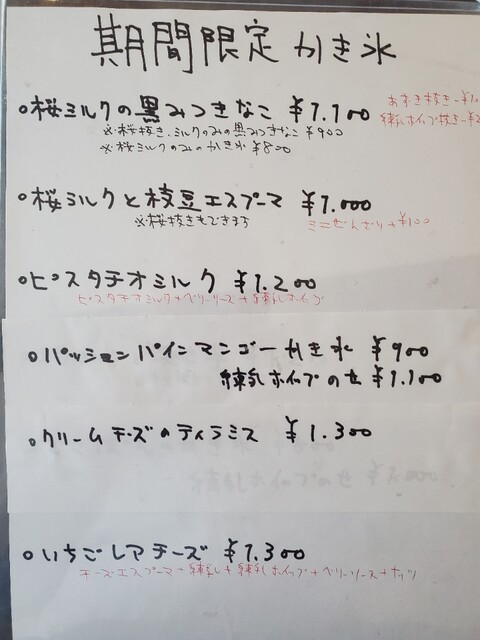 期間限定かき氷
○桜ミルクの黒みつきなこ ¥1.100
あずき抜き-¥1
練乳ホイップ抜き-¥2
※桜抜き、ミルクのみの黒みつきなこ ¥900
※桜ミルクのみのかき氷 ¥800
○桜ミルクと枝豆エスプーマ ¥1.000
※桜抜きもできます
ミニぜんざい+¥100
○ピスタチオミルク ¥1.200
ピスタチオミルク+ベリーソース+練乳ホイップ
○パッションパインマンゴーかき氷 ¥900
練乳ホイップのせ ¥1.100
○クリームチーズのティラミス ¥1.300
○いちごレアチーズ ¥1.300
チーズエスプーマ+練乳+練乳ホイップ+ベリーソース+ナッツ